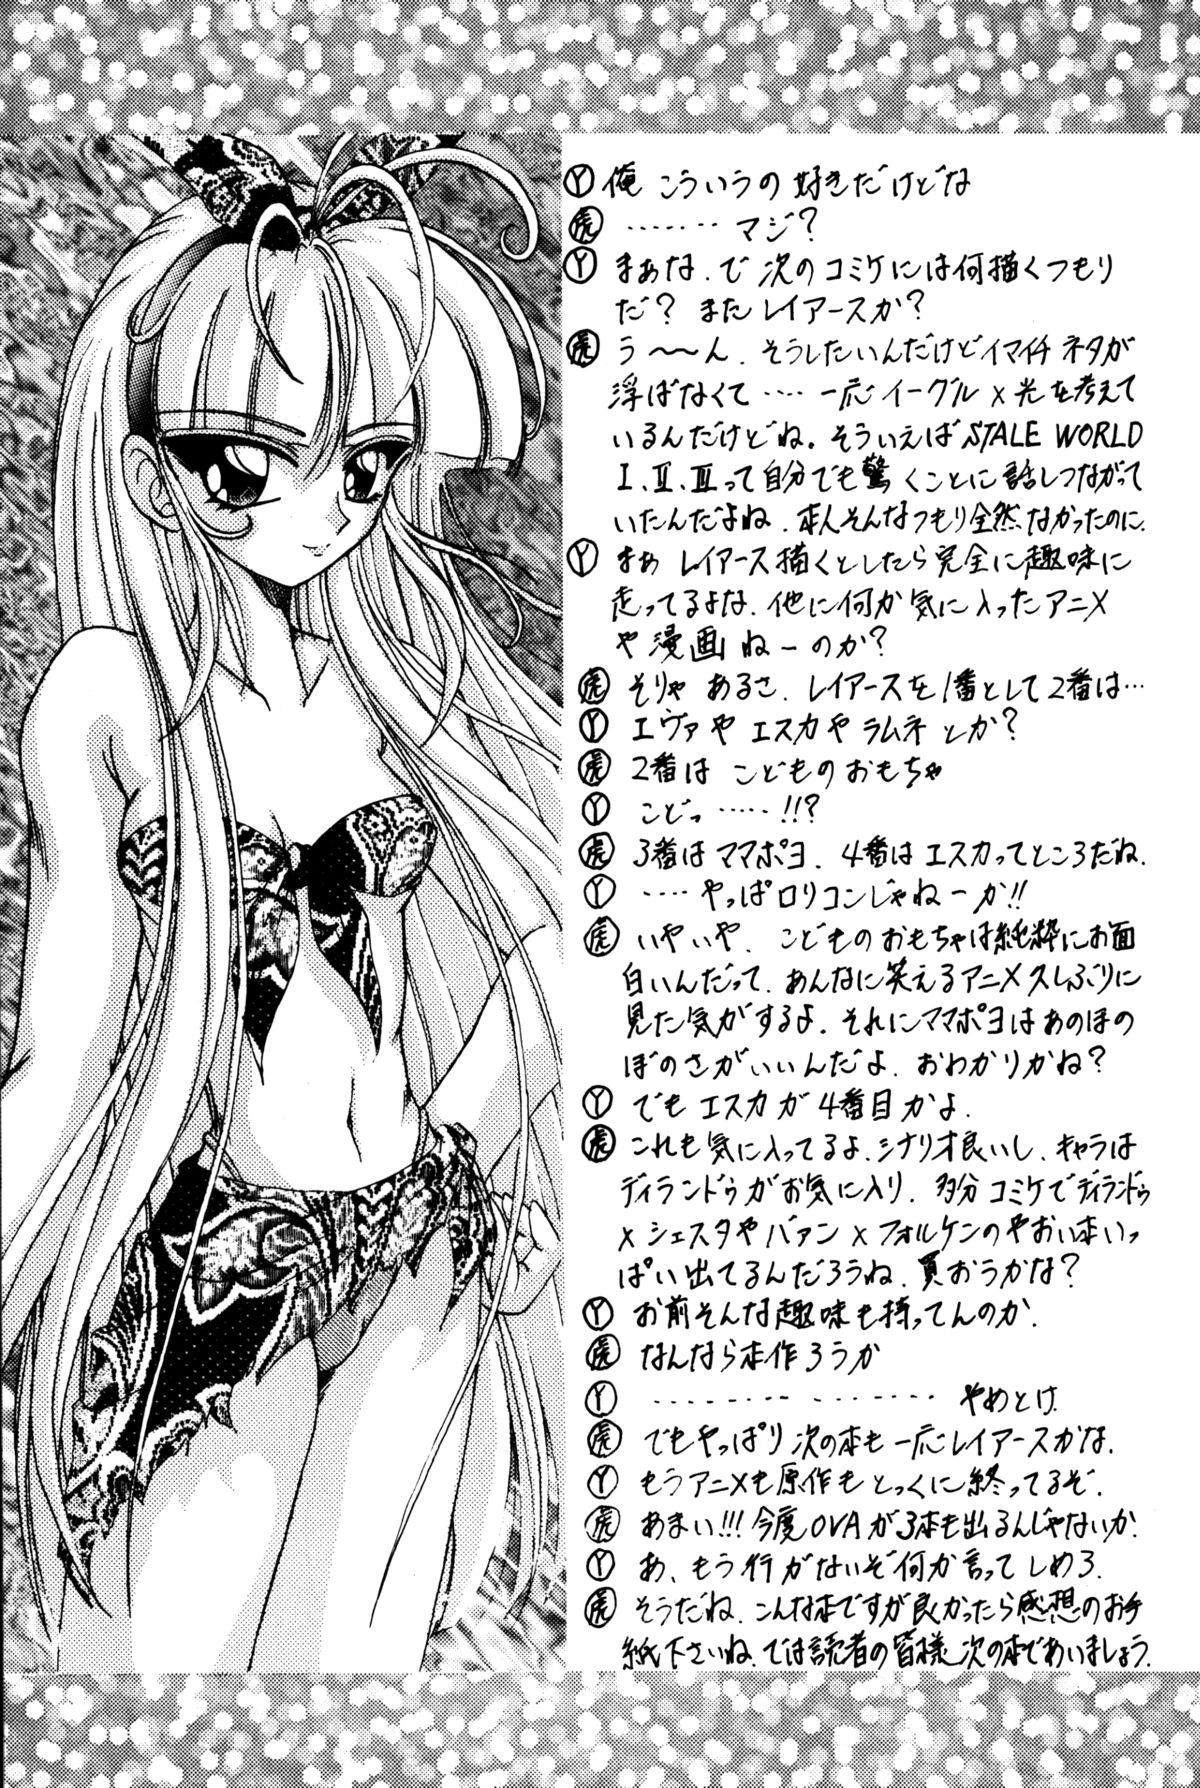 Ⓨ 俺 こういうの 好きだけどな
㊌虎 ……… マジ?
Ⓨ まぁな. で 次の コミケには何描くつもり
だ? また レイアースか?
虎 う〜〜ん. そうしたいんだけどイマイチ ネタが
浮ばなくて …… 一応 イーグル × 光を考えて
いるんだけどね. そういえば STALE WORLD
I. II. IIIって自分でも驚くことに話しつながって
いたんだよね. 本人そんなつもり全然なかったのに.
Ⓨ まぁ レイアース描くとしたら完全に趣味に
走ってるよな. 他に何か気に入ったアニメ
や 漫画 ねーのか?
虎 そりゃ あるさ. レイアースを1番として2番は…
Ⓨ エヴァや エスカや ラムネ とか?
虎 2番は こどものおもちゃ
Ⓨ こどっ ……!!?
虎 3番は ママポヨ. 4番は エスカってところだね.
Ⓨ …… やっぱロリコンじゃねーか!!
虎 いやいや. こどものおもちゃは純粋にお面
白いんだって. あんなに笑えるアニメ久しぶりに
見た気がするよ. それにママポヨはあのほの
ぼのさがいいんだよ. おわかりかね?
Ⓨ でも エスカが 4番目かよ.
虎 これも気に入ってるよ. シナリオ良いし. キャラは
ディランドゥがお気に入り. 多分 コミケでディランドゥ
× シェスタや バァン × フォルケンのやおい本いっ
ぱい出てるんだろうね. 買おうかな?
Ⓨ お前そんな趣味も持ってんのか.
虎 なんなら本作ろうか
Ⓨ ……………… やめとけ
虎 でもやっぱり 次の本も 一応レイアースかな.
Ⓨ もうアニメも原作も とっくに終ってるぞ.
虎 あまい!!! 今度OVAが3本も出るんじゃないか.
Ⓨ あ、もう行がないぞ何か言って しめろ.
虎 そうだね. こんな本ですが良かったら感想のお手
紙下さいね. では読者の皆様 次の本であいましょう.